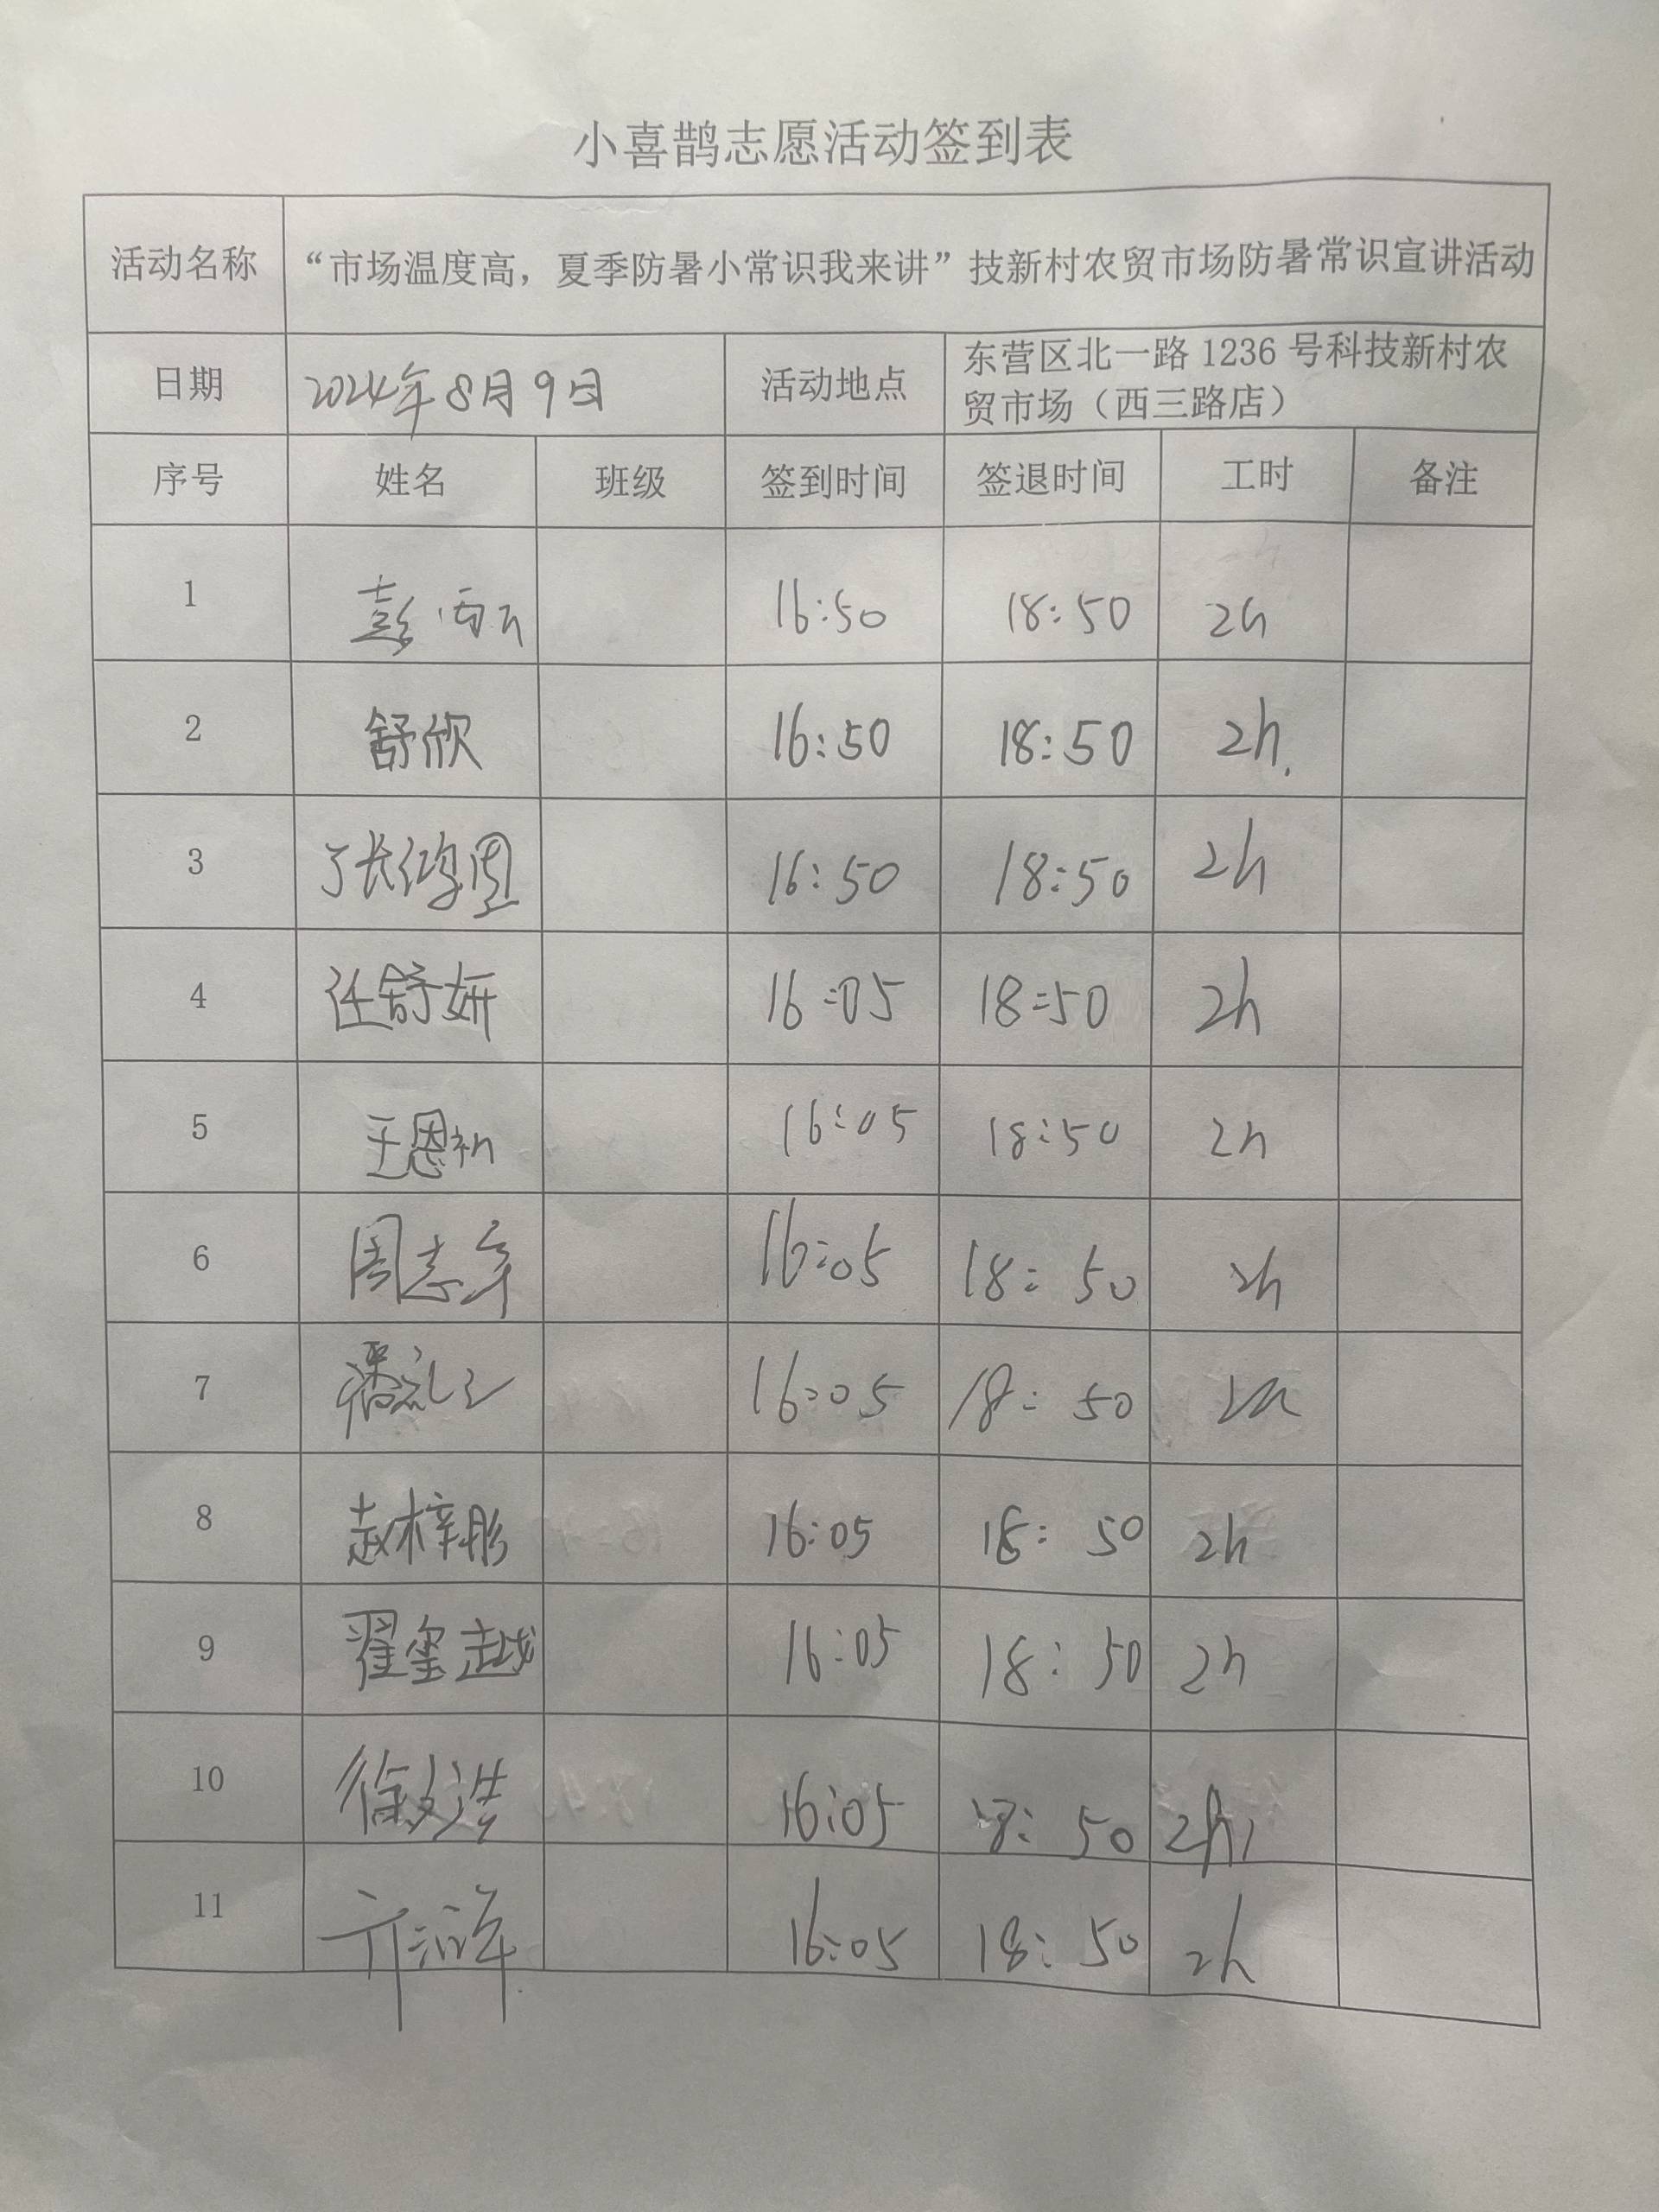 小喜鹊志愿活动签到表
活动名称 “市场温度高，夏季防暑小常识我来讲”技新村农贸市场防暑常识宣讲活动
日期 2024年8月9日 活动地点 东营区北一路 1236 号科技新村农
贸市场（西三路店）
序号 姓名 班级 签到时间 签退时间 工时 备注
1 彭 16:50 18:50 2h
2 舒欣 16:50 18:50 2h.
3 张 16:50 18:50 2h
4 任舒妍 16:05 18:50 2h
5 王恩 16:05 18:50 2h
6 周志 16:05 18:50 2h
7 潘 16:05 18:50 2h
8 赵梓彤 16:05 18:50 2h
9 翟玺越 16:05 18:50 2h
10 徐文浩 16:05 18:50 2h
11 16:05 18:50 2h